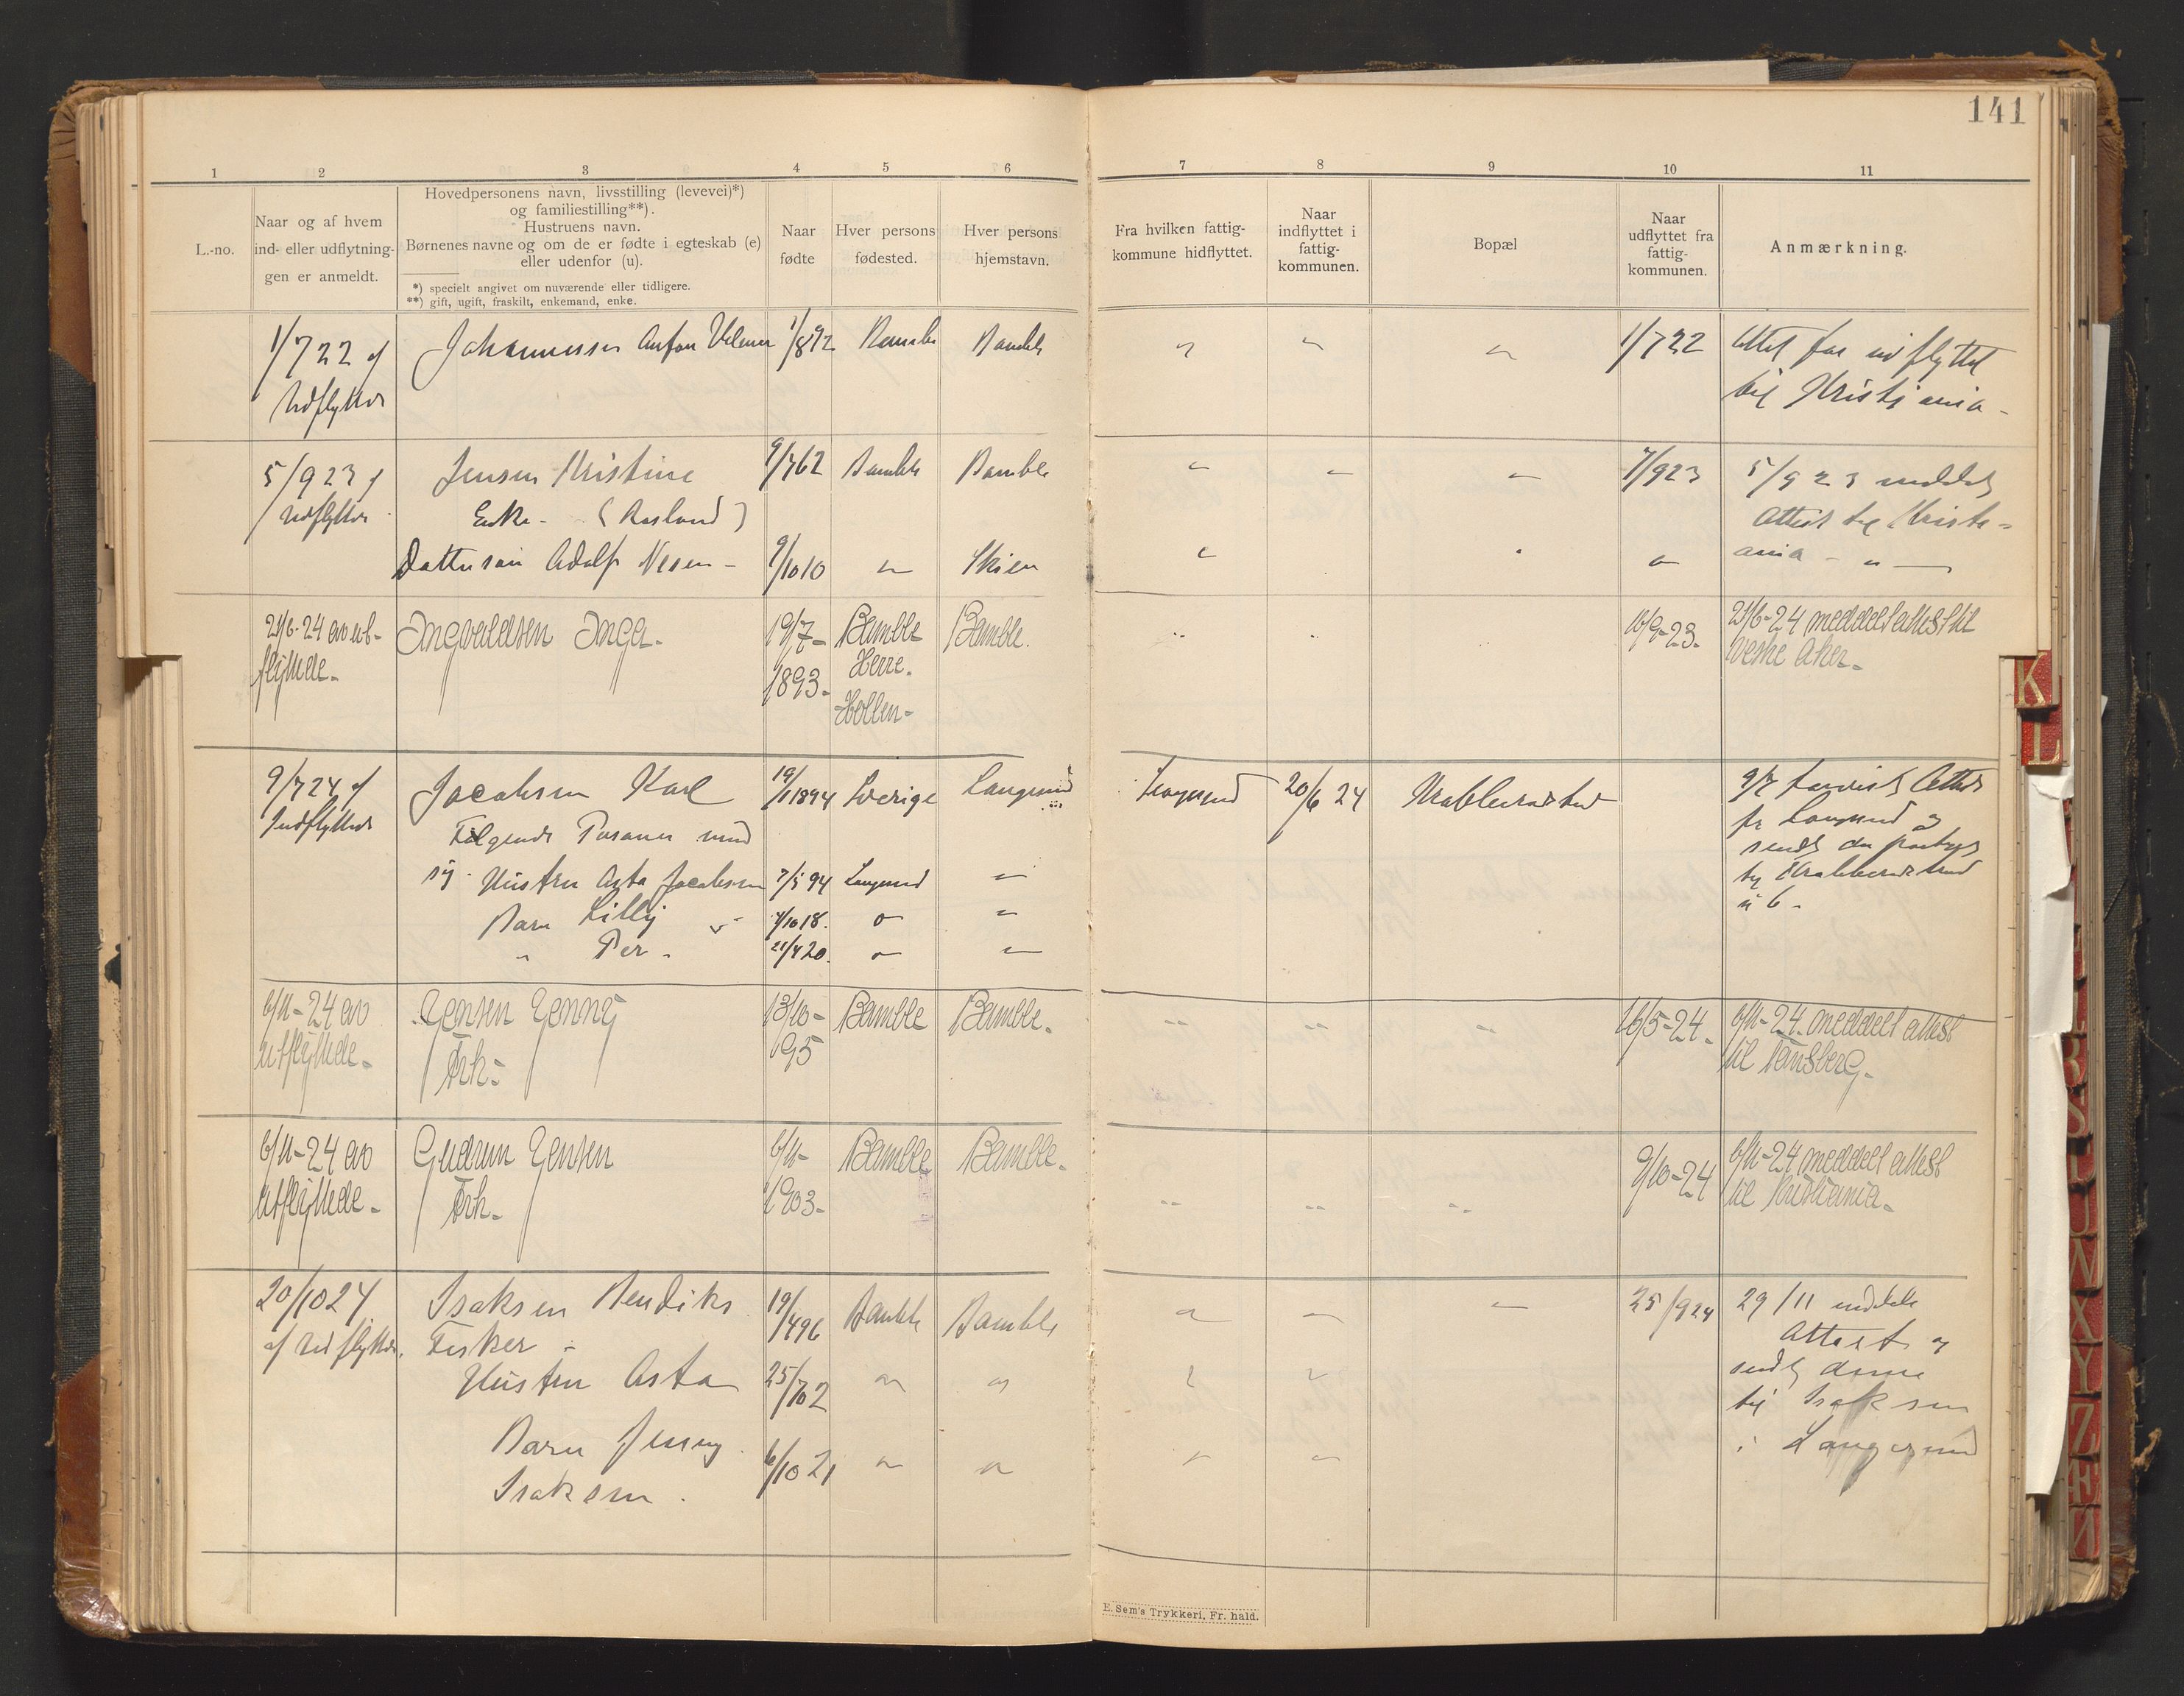 141
1 2 3 4 5 6 7 8 9 10 11
L.-no.
Naar og af hvem
ind- eller udflytning-
gen er anmeldt.
Hovedpersonens navn, livsstilling (levevei)*)
og familiestilling**).
Hustruens navn.
Børnenes navne og om de er fødte i egteskab (e)
eller udenfor (u).
*) specielt angivet om nuværende eller tidligere.
**) gift, ugift, fraskilt, enkemand, enke.
Naar
fødte
Hver persons
fødested.
Hver persons
hjemstavn.
Fra hvilken fattig-
kommune hidflyttet.
Naar
indflyttet i
fattig-
kommunen.
Bopæl
Naar
udflyttet fra
fattig-
kommunen.
Anmærkning.
1/7 22 af
Udflytter
Johannessen Anton
1/8 92
Bamble
Bamble
1/7 22
Attest for udflyttet
til Kristiania -
5/9 23 af
Udflytter
Jensen Kristine
Enke - (Aasland)
9/7 62
Bamble
Bamble
7/9 23
5/9 23 meddelt
Attest til Kristi=
ania - " -
Dattersøn Adolf
9/10 10
"
Skien
"
21/6-24 av ut-
flyttede-
Ingvaldsen Inga-
19/7-
1893-
Bamble
Herre-
Hollen-
Bamble.
16/9-23-
21/6-24 meddelt attest til
Vestre Aker-
9/7 24 af
Indflytter
Jacobsen Karl
Følgende Personer med
sig - Hustru Asta Jacobsen
Barn Lilly "
" Per -
19/1 1894
7/5 94
4/10 18.
21/4 20.
Sverige
Langesund
"
"
Langesund
"
"
"
Langesund
20/6 24
Krabberødstrand
9/7 Attest
fra Langesund og
sendt
til Krabberødstrand
6 -
6/11-24 av
utflyttede-
Jensen Jenny
Frk-
13/10-
95
Bamble
Bamble-
16/5-24-
6/11-24 meddelt attest
til Tønsberg-
6/11-24 av
utflyttede-
Gudrun Jensen
Frk-
6/11-
1903-
Bamble
Bamble-
9/10-24
6/11-24 meddelt attest
til Kristiania-
20/10 24
af Udflytter.
Isaksen Hendiks
Fisker -
Hustru Asta
Barn Jenny
Isaksen.
19/4 96
25/7 02
6/10 21
Bamble
"
"
Bamble
"
"
25/9 24
29/11 meddelt
Attest og
sendt denne
til Isaksen
i Langesund
E. Sem's Trykkeri, Fr. hald.
K
L